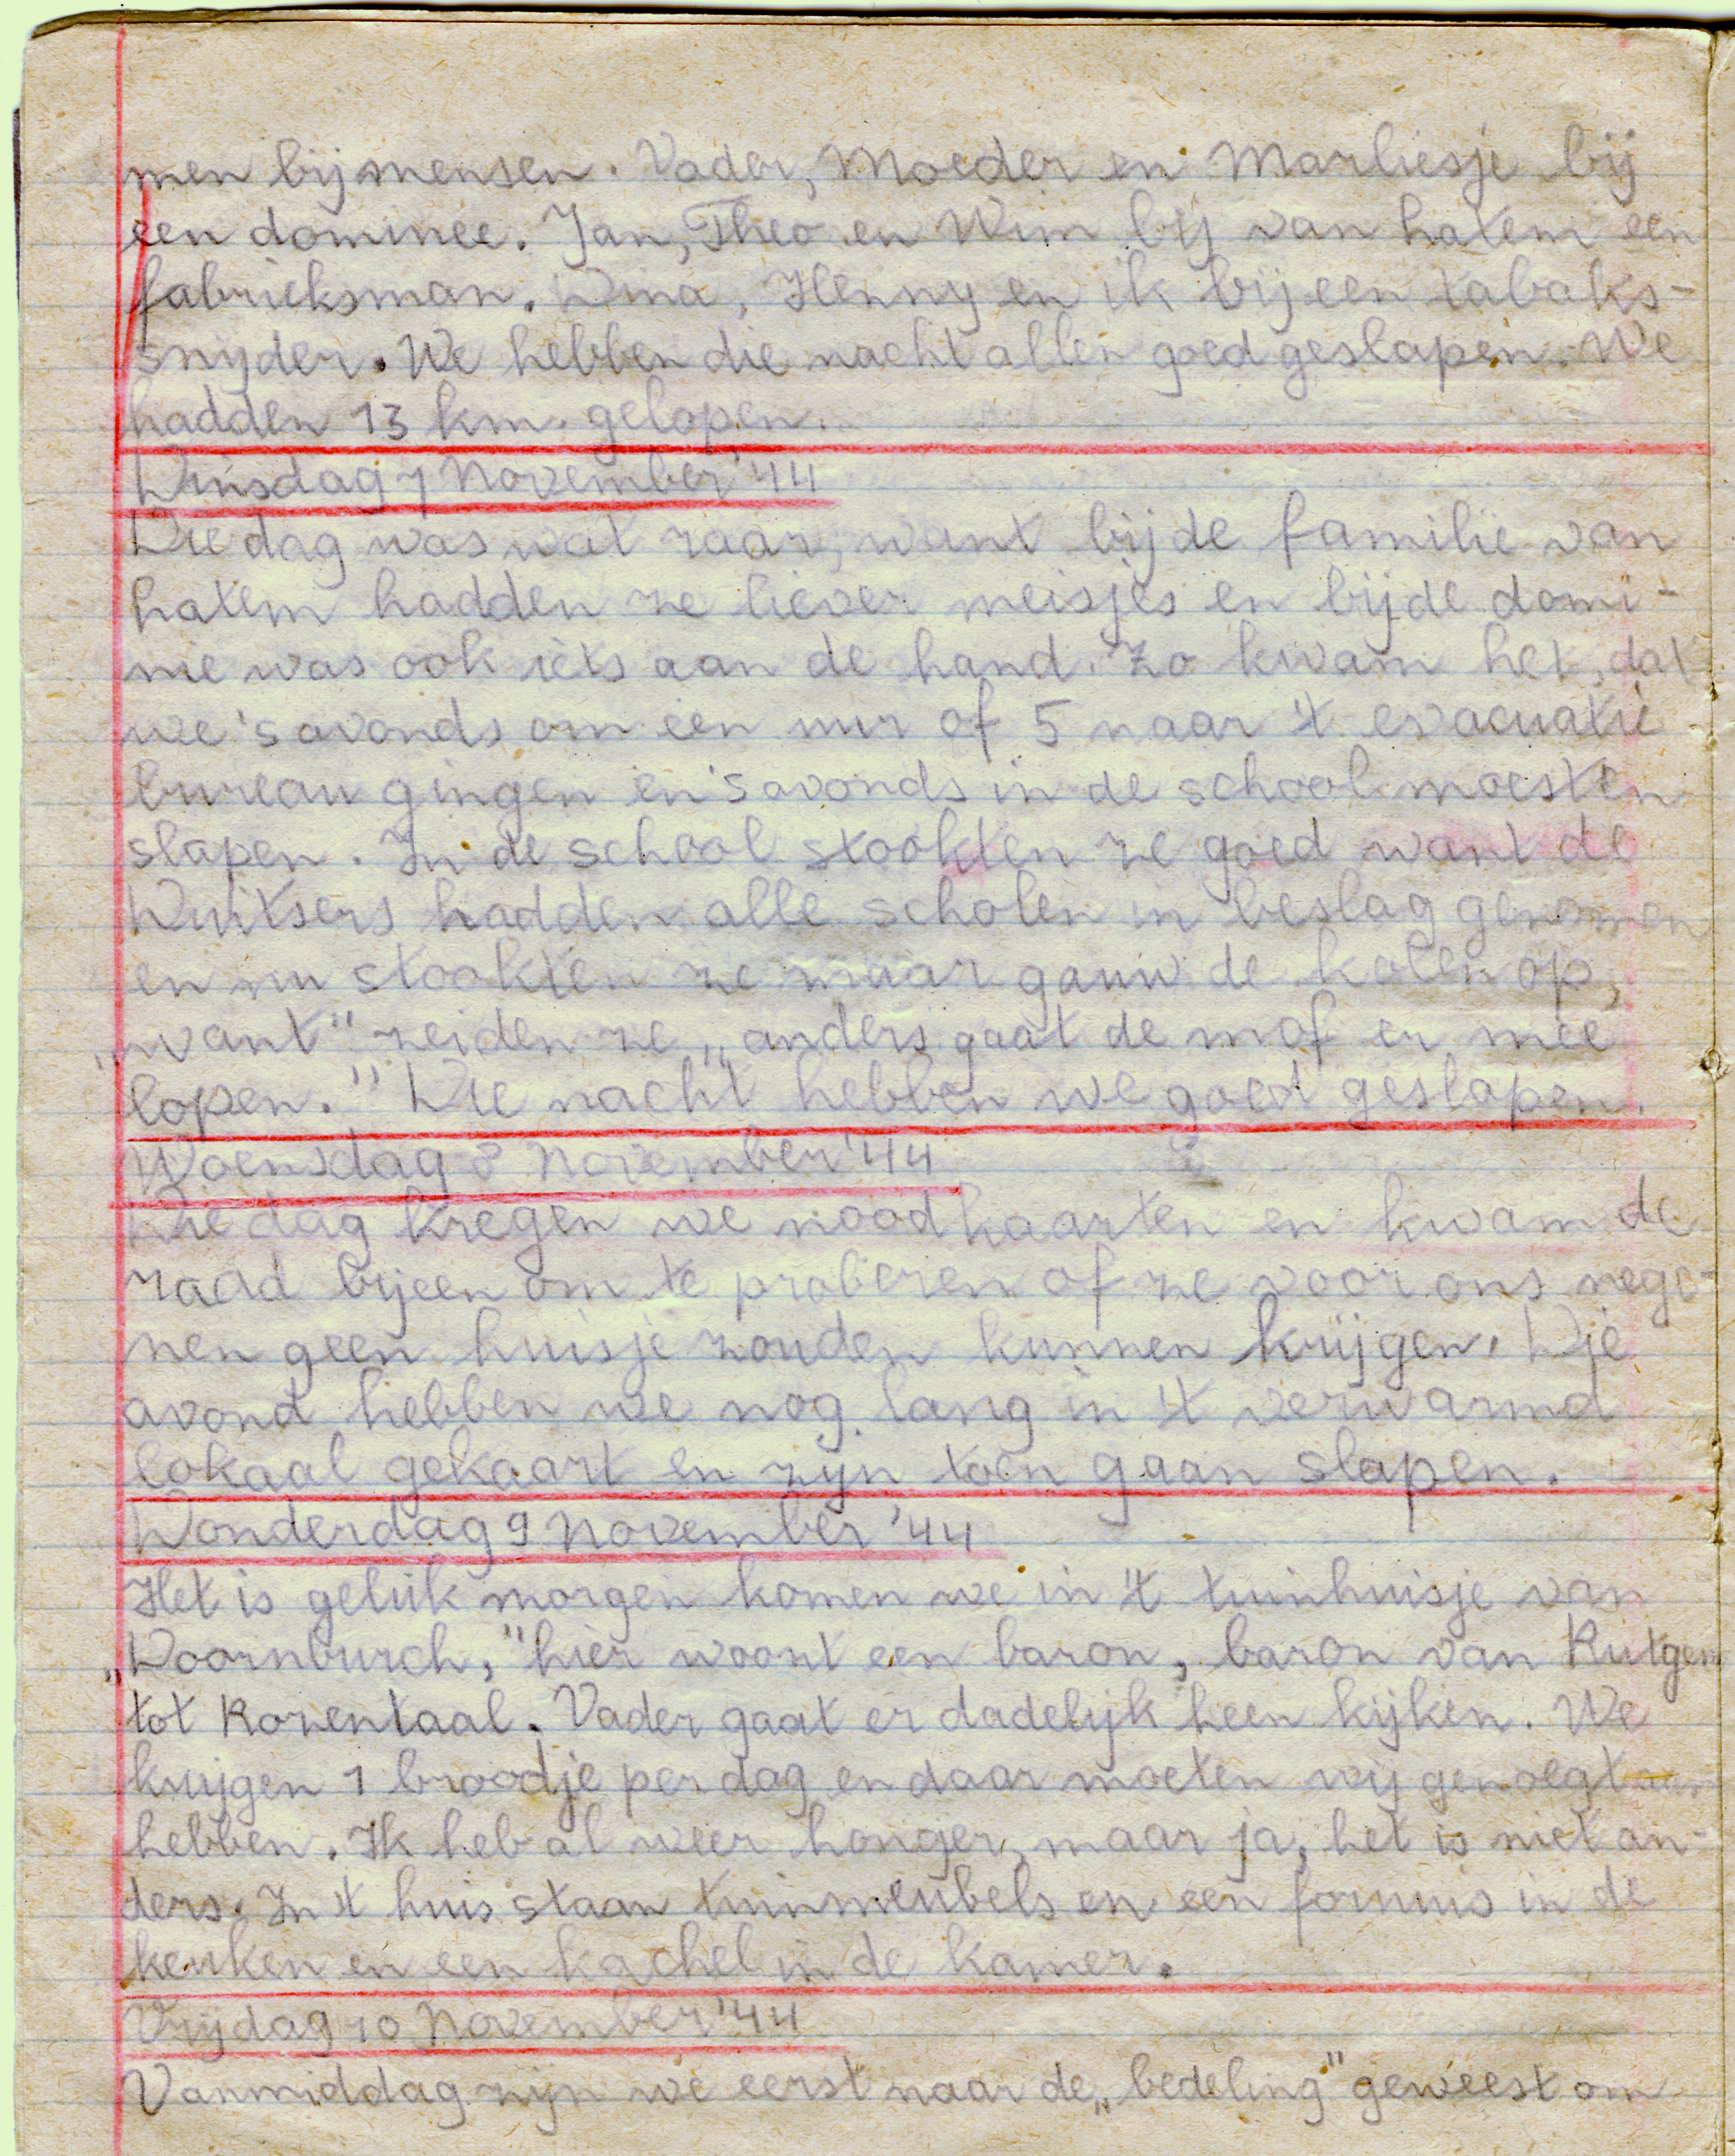 men bij mensen. Vader, Moeder en Marliesje bij
een dominee. Jan, Theo en Wim bij van hatem een
fabrieksman. Wina, Henny en ik bij een tabaks-
snyder. We hebben die nacht allen goed geslapen. We
hadden 13 km. gelopen.
Dinsdag 7 November '44
Die dag was wat raar, want bij de familie van
hatem hadden ze liever meisjes en bij de domi-
nie was ook iets aan de hand. Zo kwam het, dat
we 's avonds om een uur of 5 naar 't evacuatie
bureau gingen en 's avonds in de school moesten
slapen. In de school stookten ze goed want de
Duitsers hadden alle scholen in beslag genomen
en nu stookten ze maar gauw de kolen op,
„want" zeiden ze „anders gaat de mof er mee
lopen." Die nacht hebben we goed geslapen.
Woensdag 8 November '44
Die dag kregen we noodkaarten en kwam de
raad bijeen om te proberen of ze voor ons nege-
nen geen huisje zouden kunnen krijgen. Die
avond hebben we nog lang in 't verwarmd
lokaal gekaart en zyn toen gaan slapen.
Donderdag 9 November '44
Het is geluk morgen komen we in 't tuinhuisje van
„Doornburch," hier woont een baron, baron van Rutgen
tot Rozentaal. Vader gaat er dadelyk heen kijken. We
krijgen 1 broodje per dag en daar moeten wy genoegt
hebben. Ik heb al weer honger, maar ja, het is niet an-
ders. In 't huis staan tuinmeubels en een fornuis in de
keuken en een kachel in de kamer.
Vrijdag 10 November '44
Vanmiddag zijn we eerst naar de „bedeling" geweest om